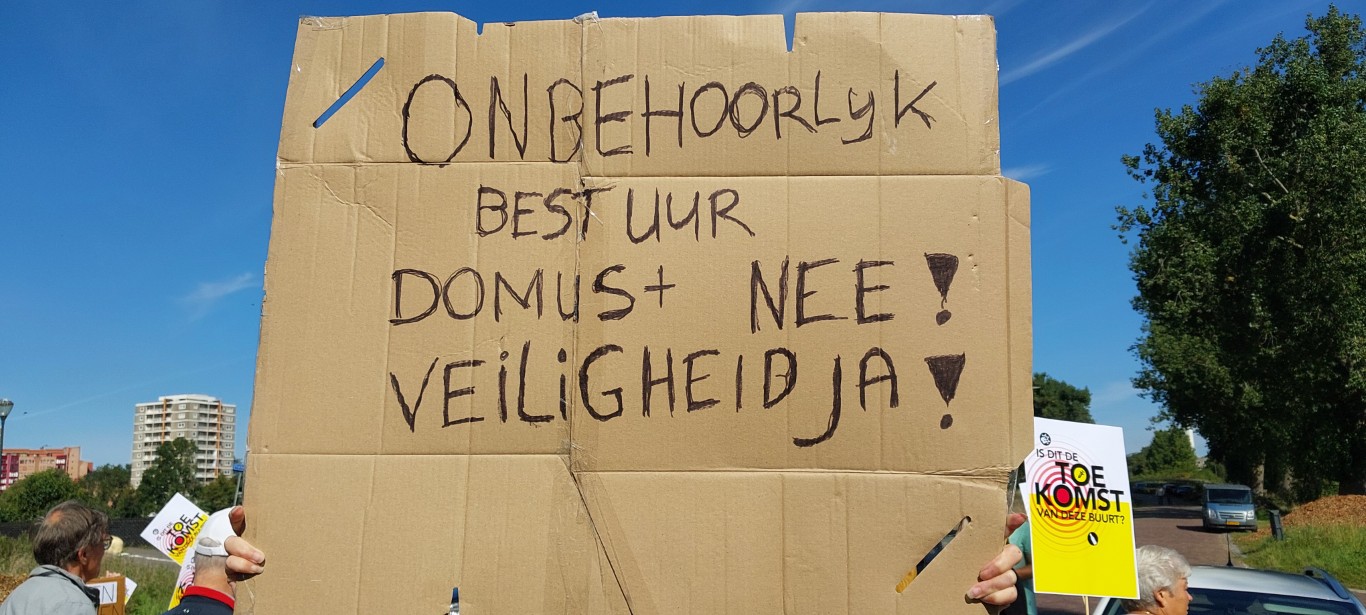 ONBEHOORLyK
BESTUUR
DOMUS+ NEE!
VEiLiGHEID JA!
IS DIT DE
TOE
KOMST
VAN DEZE BUURT?
TOE
KOMST